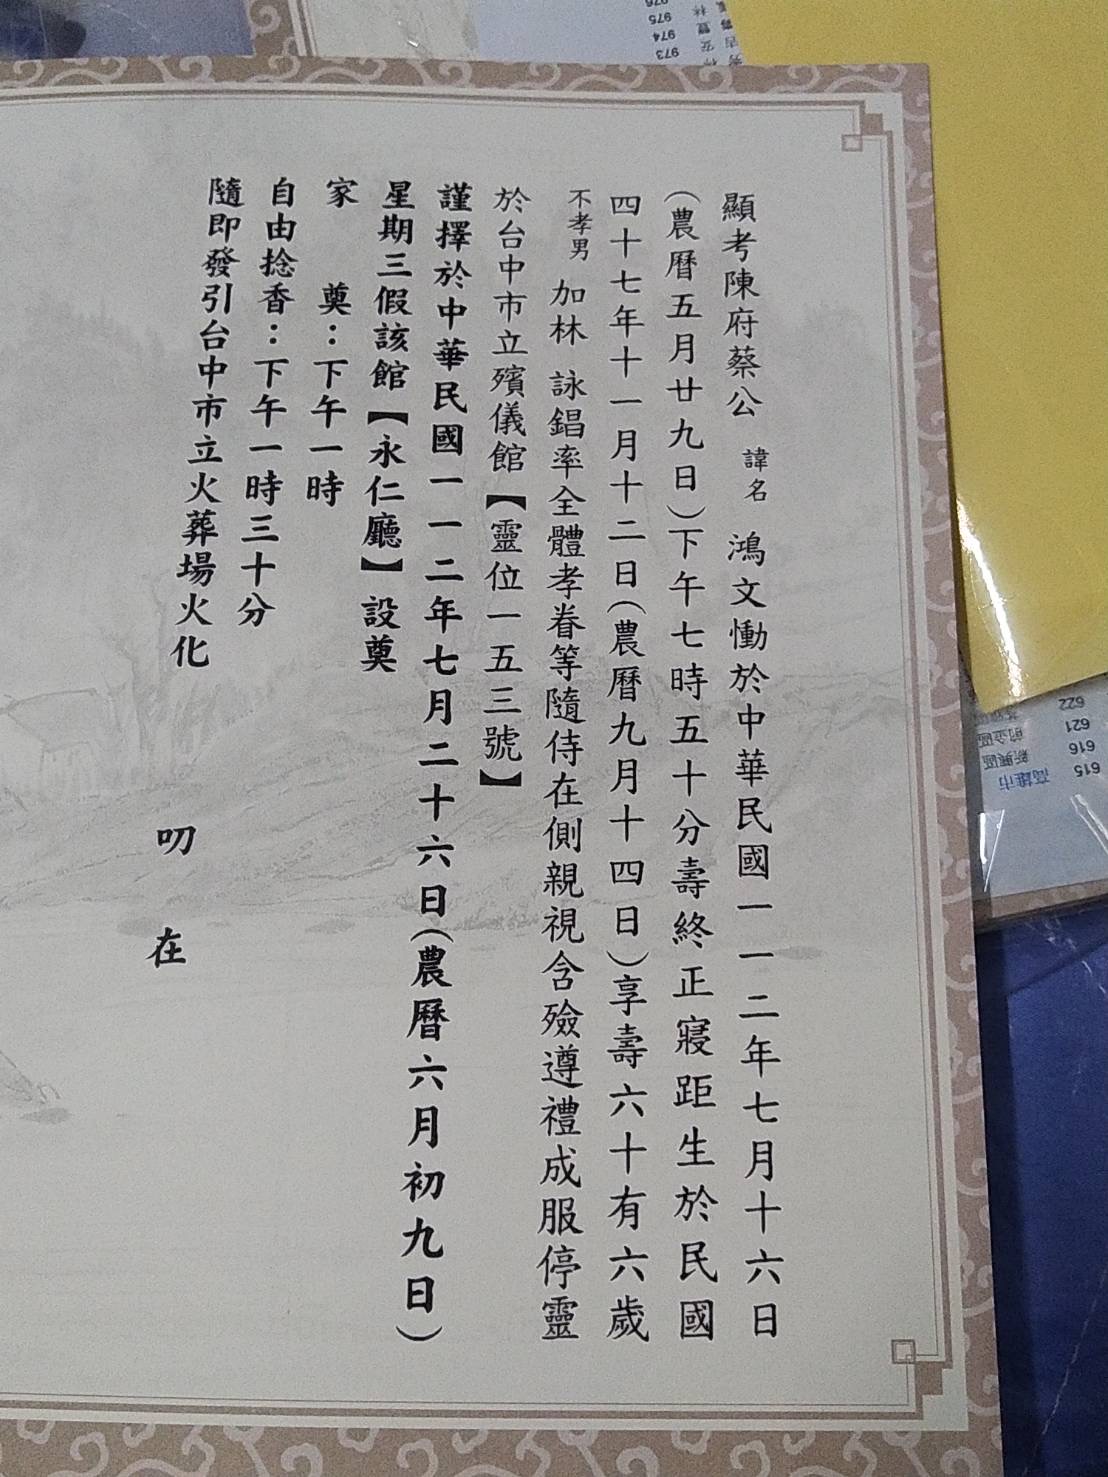 顯考陳府蔡公 諱名 鴻文慟於中華民國一一二年七月十六日
(農曆五月廿九日)下午七時五十分壽終正寢距生於民國
四十七年十一月十二日(農曆九月十四日)享壽六十有六歲
不孝男 加林 詠錩率全體孝眷等隨侍在側親視含殮遵禮成服停靈
於台中市立殯儀館【靈位一五三號】
謹擇於中華民國一一二年七月二十六日(農曆六月初九日)
星期三假該館【永仁廳】設奠
家 奠:下午一時
自由捻香:下午一時三十分
隨即發引台中市立火葬場火化
叨在
976
975
974
973
622
621 前金區
616 新興區
615 高雄市